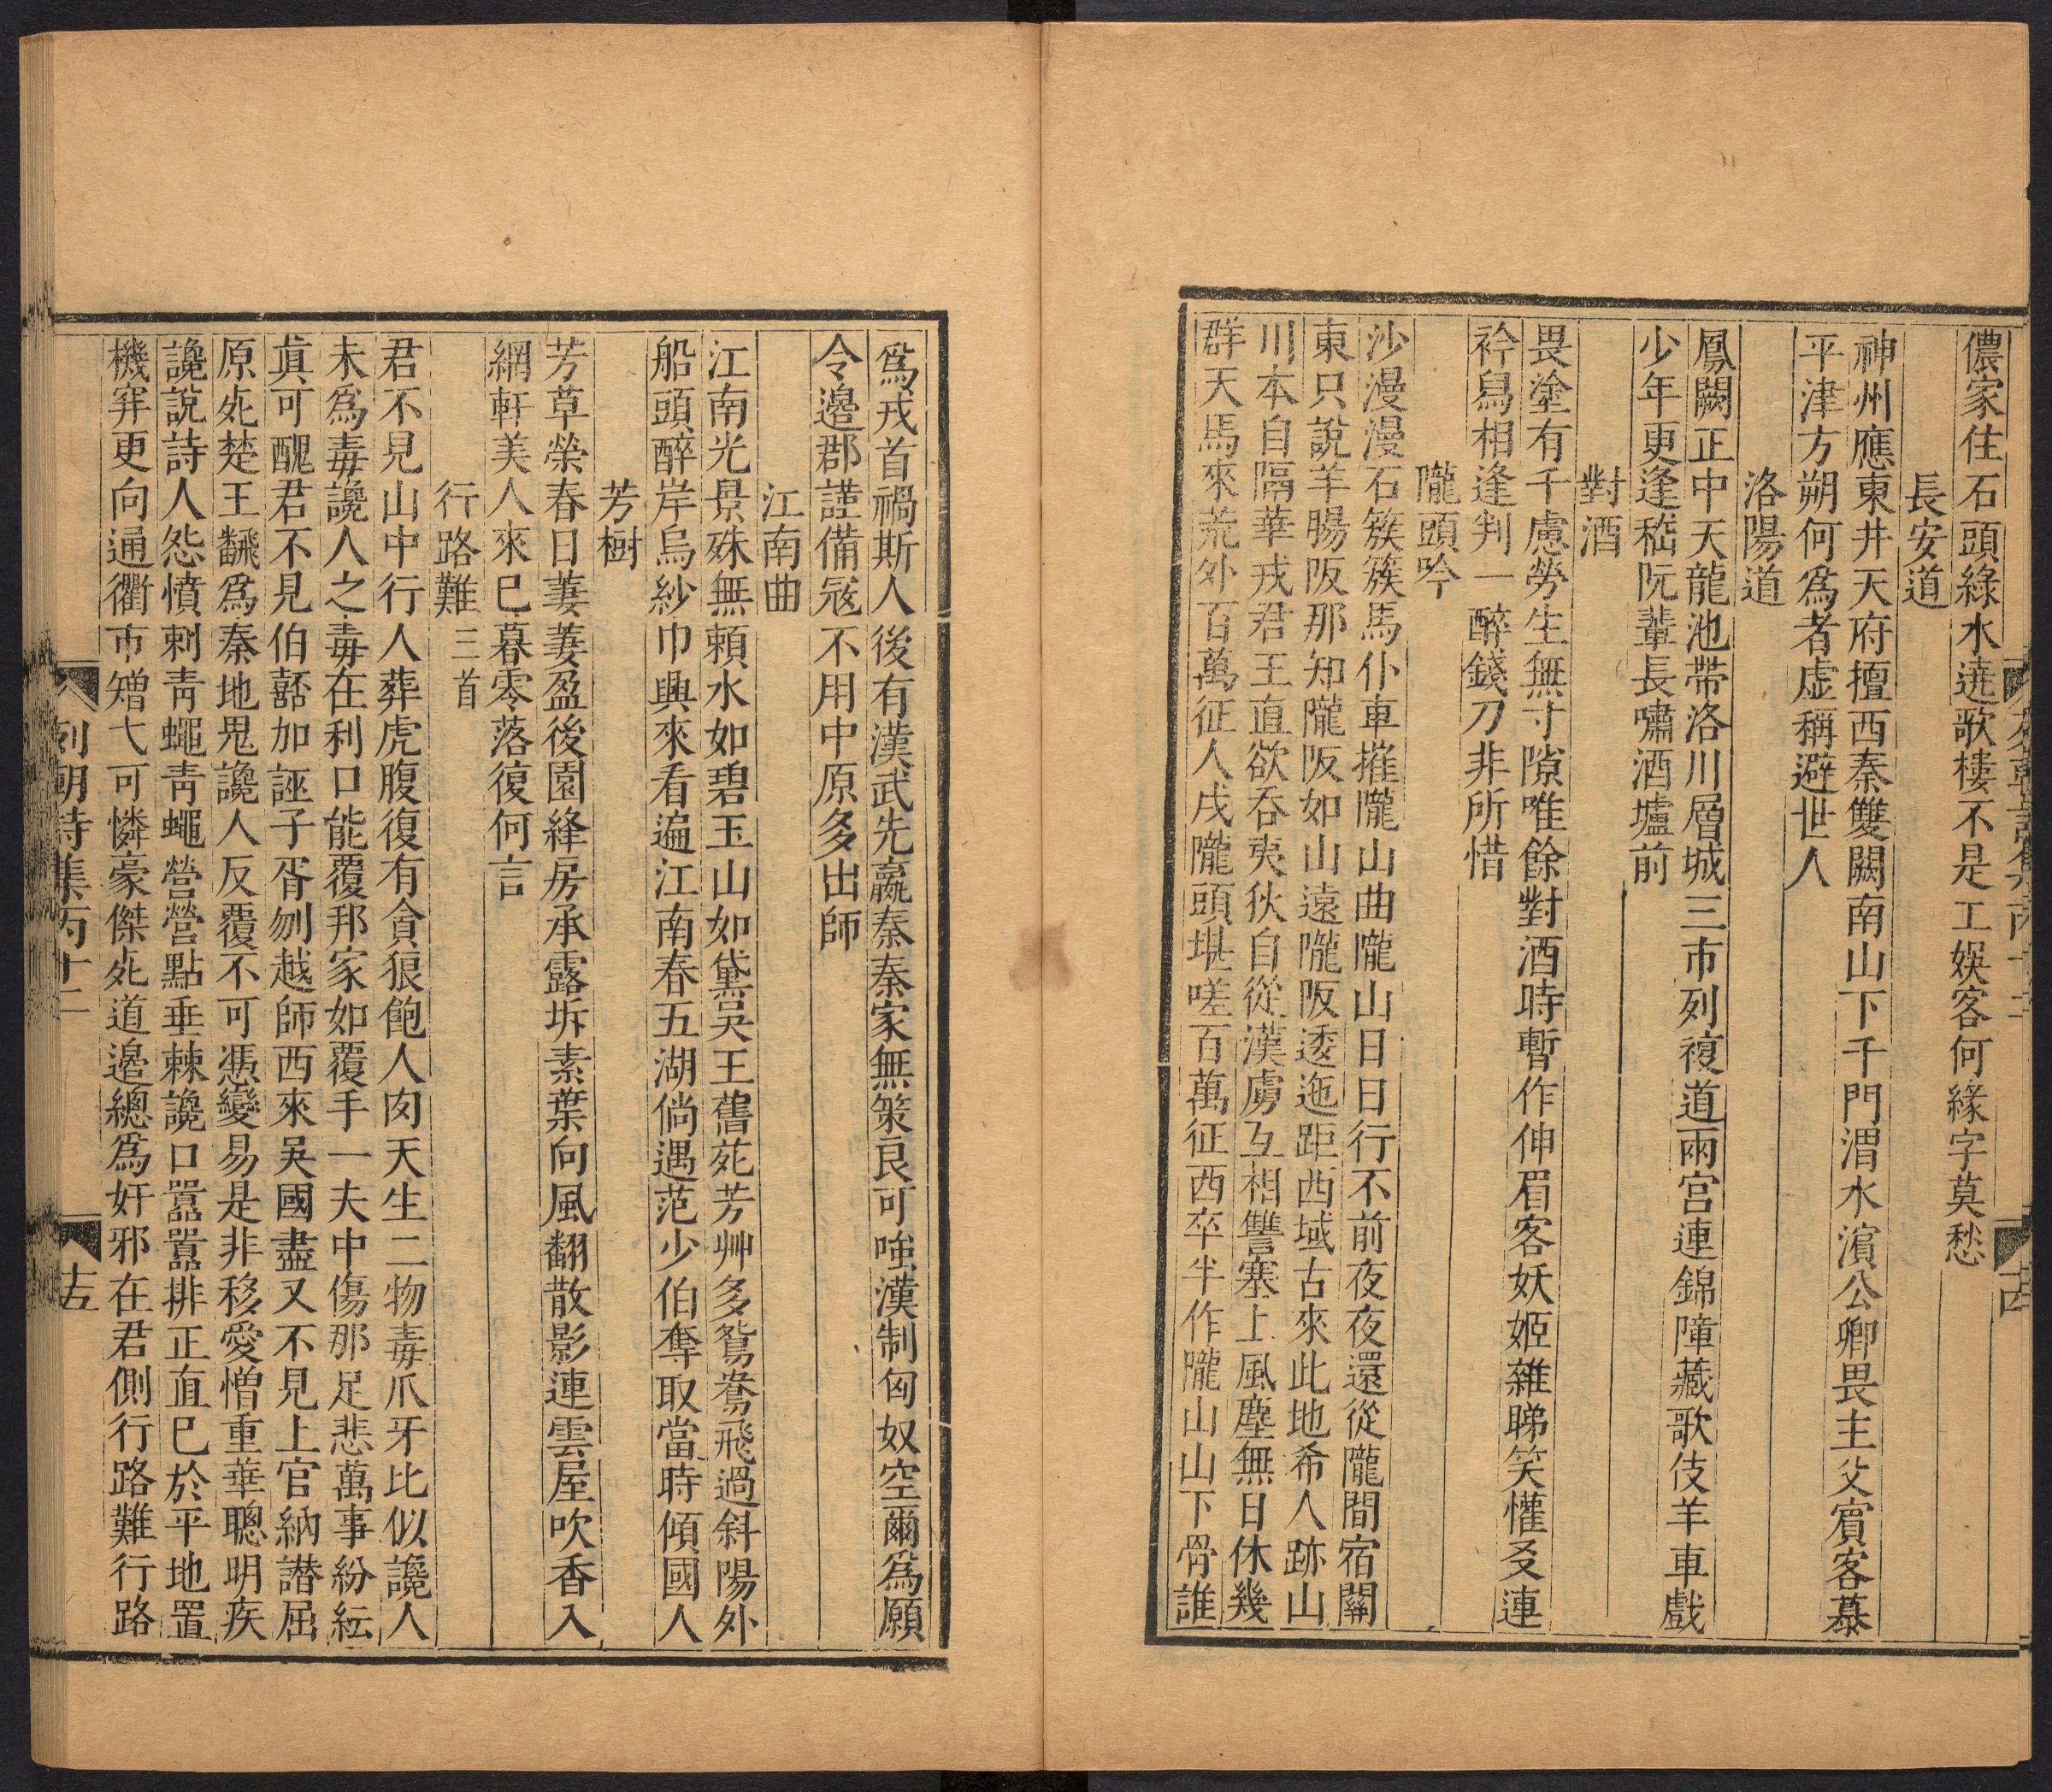 儂家住石頭綠水遶歌樓不是工娛客何緣字莫愁
長安道
神州應東井天府擅西秦雙闕南山下千門渭水濱公卿畏主父賓客慕
平津方朔何爲者虛稱避世人
洛陽道
鳳闕正中天龍池帶洛川層城三市列複道兩宮連錦障藏歌伎羊車戲
少年更逢嵇阮輩長嘯酒壚前
對酒
畏塗有千慮勞生無寸隙唯餘對酒時暫作伸眉客妖姬雜睇笑懽㕛連
衿舄相逢判一醉錢刀非所惜
隴頭吟
沙漫漫石簇簇馬仆車摧隴山曲隴山日日行不前夜夜還從隴間宿關
東只說羊腸阪那知隴阪如山遠隴阪逶迤距西域古來此地希人跡山
川本自隔華戎君王直欲吞夷狄自從漢虜互相讐塞上風塵無日休幾
群天馬來荒外百萬征人戍隴頭堪嗟百萬征西卒半作隴山山下骨誰
爲戎首禍斯人後有漢武先嬴秦秦家無策良可嗤漢制匈奴空爾爲願
令邉郡謹備寇不用中原多出師
江南曲
江南光景殊無賴水如碧玉山如黛吳王舊苑芳艸多鴛鴦飛過斜陽外
船頭醉岸烏紗巾興來看遍江南春五湖倘遇范少伯奪取當時傾國人
芳樹
芳草榮春日萋萋盈後園絳房承露坼素葉向風翻散影連雲屋吹香入
網軒美人來巳暮零落復何言
行路難三首
君不見山中行人葬虎腹復有貪狼飽人肉天生二物毒爪牙比似讒人
未爲毒讒人之毒在利口能覆邦家如覆手一夫中傷那足悲萬事紛紜
眞可醜君不見伯嚭加誣子胥刎越師西來吳國盡又不見上官納譖屈
原死楚王飜爲秦地鬼讒人反覆不可憑變易是非移愛憎重華聰明疾
讒說詩人怨憤刺靑蠅靑蠅營營點垂棘讒口嚣嚣排正直巳於平地置
機穽更向通衢市矰弋可憐豪傑死道邉總爲奸邪在君側行路難行路
列朝詩集丙十二
十五